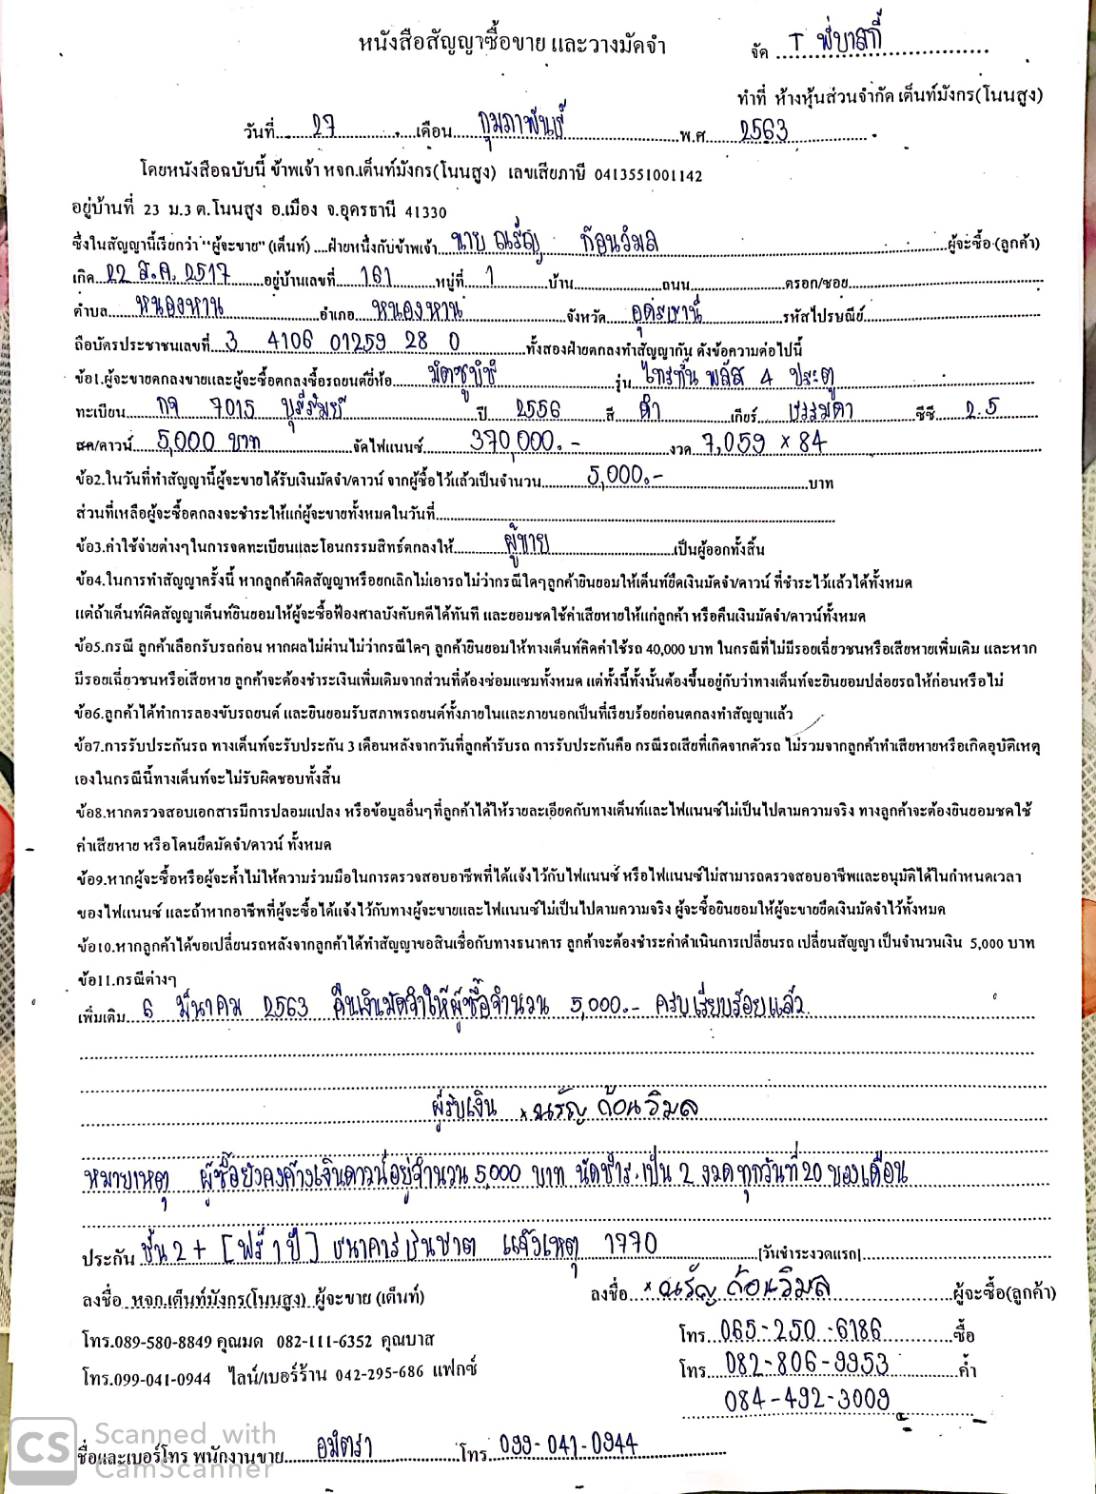 หนังสือสัญญาซื้อขาย และวางมัดจำ
จัด T พี่บาสกี้
ทำที่ ห้างหุ้นส่วนจำกัด เต็นท์มังกร(โนนสูง)
วันที่ 27 เดือน กุมภาพันธ์ พ.ศ 2563
โดยหนังสือฉบับนี้ ข้าพเจ้า หจก.เต็นท์มังกร(โนนสูง) เลขเสียภาษี 0413551001142
อยู่บ้านที่ 23 ม.3 ต.โนนสูง อ.เมือง จ.อุดรธานี 41330
ซึ่งในสัญญานี้เรียกว่า "ผู้จะขาย" (เต็นท์) ฝ่ายหนึ่งกับข้าพเจ้า นาย ณรัญ ก้อนวิมล ผู้จะซื้อ (ลูกค้า)
เกิด 22 ส.ค. 2517 อยู่บ้านเลขที่ 161 หมู่ที่ 1 บ้าน ถนน ตรอก/ซอย
ตำบล หนองหาน อำเภอ หนองหาน จังหวัด อุดรธานี รหัสไปรษณีย์
ถือบัตรประชาชนเลขที่ 3 4106 01259 28 0 ทั้งสองฝ่ายตกลงทำสัญญากัน ดังข้อความต่อไปนี้
ข้อ1.ผู้จะขายตกลงขายและผู้จะซื้อตกลงซื้อรถยนต์ยี่ห้อ มิตซูบิชิ รุ่น ไทรทัน พลัส 4 ประตู
ทะเบียน กจ 7015 บุรีรัมย์ ปี 2556 สี ดำ เกียร์ ธรรมดา ซีซี 2.5
สด/ดาวน์ 5,000 บาท จัดไฟแนนซ์ 370,000.- งวด 7,059 × 84
ข้อ2.ในวันที่ทำสัญญานี้ผู้จะขายได้รับเงินมัดจำ/ดาวน์ จากผู้ซื้อไว้แล้วเป็นจำนวน 5,000.- บาท
ส่วนที่เหลือผู้จะซื้อตกลงจะชำระให้แก่ผู้จะขายทั้งหมดในวันที่
ข้อ3.ค่าใช้จ่ายต่างๆในการจดทะเบียนและโอนกรรมสิทธ์ตกลงให้ ผู้ขาย เป็นผู้ออกทั้งสิ้น
ข้อ4.ในการทำสัญญาครั้งนี้ หากลูกค้าผิดสัญญาหรือยกเลิกไม่เอารถไม่ว่ากรณีใดๆลูกค้ายินยอมให้เต็นท์ยึดเงินมัดจำ/ดาวน์ ที่ชำระไว้แล้วได้ทั้งหมด
แต่ถ้าเต็นท์ผิดสัญญาเต็นท์ยินยอมให้ผู้จะซื้อฟ้องศาลบังคับคดีได้ทันที และยอมชดใช้ค่าเสียหายให้แก่ลูกค้า หรือคืนเงินมัดจำ/ดาวน์ทั้งหมด
ข้อ5.กรณี ลูกค้าเลือกรับรถก่อน หากผลไม่ผ่านไม่ว่ากรณีใดๆ ลูกค้ายินยอมให้ทางเต็นท์คิดค่าใช้รถ 40,000 บาท ในกรณีที่ไม่มีรอยเฉี่ยวชนหรือเสียหายเพิ่มเติม และหาก
มีรอยเฉี่ยวชนหรือเสียหาย ลูกค้าจะต้องชำระเงินเพิ่มเติมจากส่วนที่ต้องซ่อมแซมทั้งหมด แต่ทั้งนี้ทั้งนั้นต้องขึ้นอยู่กับว่าทางเต็นท์จะยินยอมปล่อยรถให้ก่อนหรือไม่
ข้อ6.ลูกค้าได้ทำการลองขับรถยนต์ และยินยอมรับสภาพรถยนต์ทั้งภายในและภายนอกเป็นที่เรียบร้อยก่อนตกลงทำสัญญาแล้ว
ข้อ7.การรับประกันรถ ทางเต็นท์จะรับประกัน 3 เดือนหลังจากวันที่ลูกค้ารับรถ การรับประกันคือ กรณีรถเสียที่เกิดจากตัวรถ ไม่รวมจากลูกค้าทำเสียหายหรือเกิดอุบัติเหตุ
เองในกรณีนี้ทางเต็นท์จะไม่รับผิดชอบทั้งสิ้น
ข้อ8.หากตรวจสอบเอกสารมีการปลอมแปลง หรือข้อมูลอื่นๆที่ลูกค้าได้ให้รายละเอียดกับทางเต็นท์และไฟแนนซ์ไม่เป็นไปตามความจริง ทางลูกค้าจะต้องยินยอมชดใช้
ค่าเสียหาย หรือโดนยึดมัดจำ/ดาวน์ ทั้งหมด
ข้อ9.หากผู้จะซื้อหรือผู้จะค้ำไม่ให้ความร่วมมือในการตรวจสอบอาชีพที่ได้แจ้งไว้กับไฟแนนซ์ หรือไฟแนนซ์ไม่สามารถตรวจสอบอาชีพและอนุมัติได้ในกำหนดเวลา
ของไฟแนนซ์ และถ้าหากอาชีพที่ผู้จะซื้อได้แจ้งไว้กับทางผู้จะขายและไฟแนนซ์ไม่เป็นไปตามความจริง ผู้จะซื้อยินยอมให้ผู้จะขายยึดเงินมัดจำไว้ทั้งหมด
ข้อ10.หากลูกค้าได้ขอเปลี่ยนรถหลังจากลูกค้าได้ทำสัญญาขอสินเชื่อกับทางธนาคาร ลูกค้าจะต้องชำระค่าดำเนินการเปลี่ยนรถ เปลี่ยนสัญญา เป็นจำนวนเงิน 5,000 บาท
ข้อ11.กรณีต่างๆ
เพิ่มเติม 6 มีนาคม 2563 คืนเงินมัดจำให้ผู้ซื้อจำนวน 5,000.- ครบเรียบร้อยแล้ว
ผู้รับเงิน × ณรัญ ก้อนวิมล
หมายเหตุ ผู้ซื้อยังคงค้างเงินดาวน์อยู่จำนวน 5,000 บาท นัดชำระเป็น 2 งวด ทุกวันที่ 20 ของเดือน
ประกัน ชั้น 2+ [ฟรี 1 ปี] ธนาคารธนชาต แจ้งเหตุ 1770 [วันชำระงวดแรก]
ลงชื่อ หจก.เต็นท์มังกร(โนนสูง) ผู้จะขาย (เต็นท์) ลงชื่อ × ณรัญ ก้อนวิมล ผู้จะซื้อ(ลูกค้า)
โทร.089-580-8849 คุณมด 082-111-6352 คุณบาส โทร 065-250-6186 ซื้อ
โทร.099-041-0944 ไลน์/เบอร์ร้าน 042-295-686 แฟกซ์ โทร 082-806-9953 ค้ำ
084-492-3009
ชื่อและเบอร์โทร พนักงานขาย อมิตรา โทร 099-041-0944
CS Scanned with
CamScanner